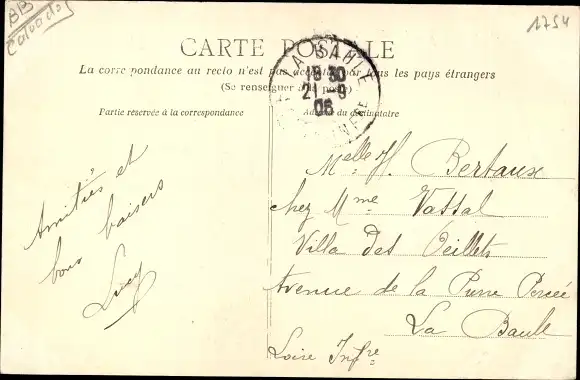 BB
Calvados
1754
CARTE POSTALE
La correspondance au recto n'est pas acceptée par tous les pays étrangers
(Se renseigner à la poste)
Partie réservée à la correspondance
Adresse du destinataire
LA BAULE
18 30
21 - 9
06
Amitiés et
bons baisers
Lucy
Melle H. Bertaux
chez Mme Vassal
Villa des Oeillets
Avenue de la Pierre Percée
La Baule
Loire Infre